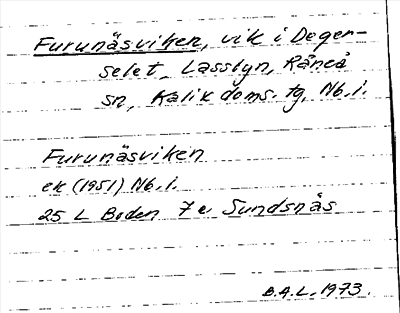 Furunäsviken, vik i Deger-
selet, Lassbyn, Råneå
sn, Kalix doms. tg, Nb. l.
Furunäsviken
ek (1951) Nb. l.
25 L Boden 7e Sundsnäs
B.A.L. 1973.